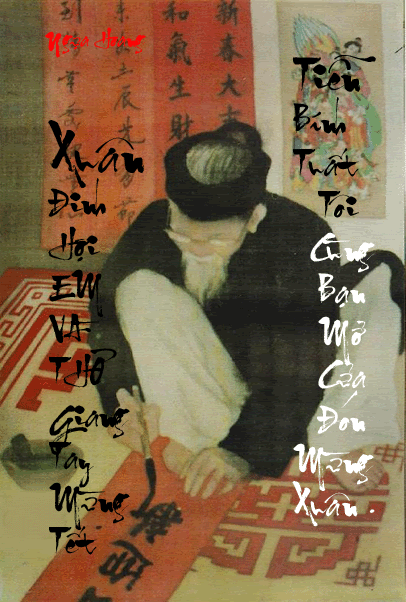 Ngựa Hoang
新春大吉
和氣生財
Tiễn
Bính
Tuất
Tôi
Cùng
Bạn
Mở
Cửa
Đón
Mừng
Xuân .
Xuân
Đinh
Hợi
EM
VÀ
THƠ
Giang
Tay
Mừng
Tết
迎新